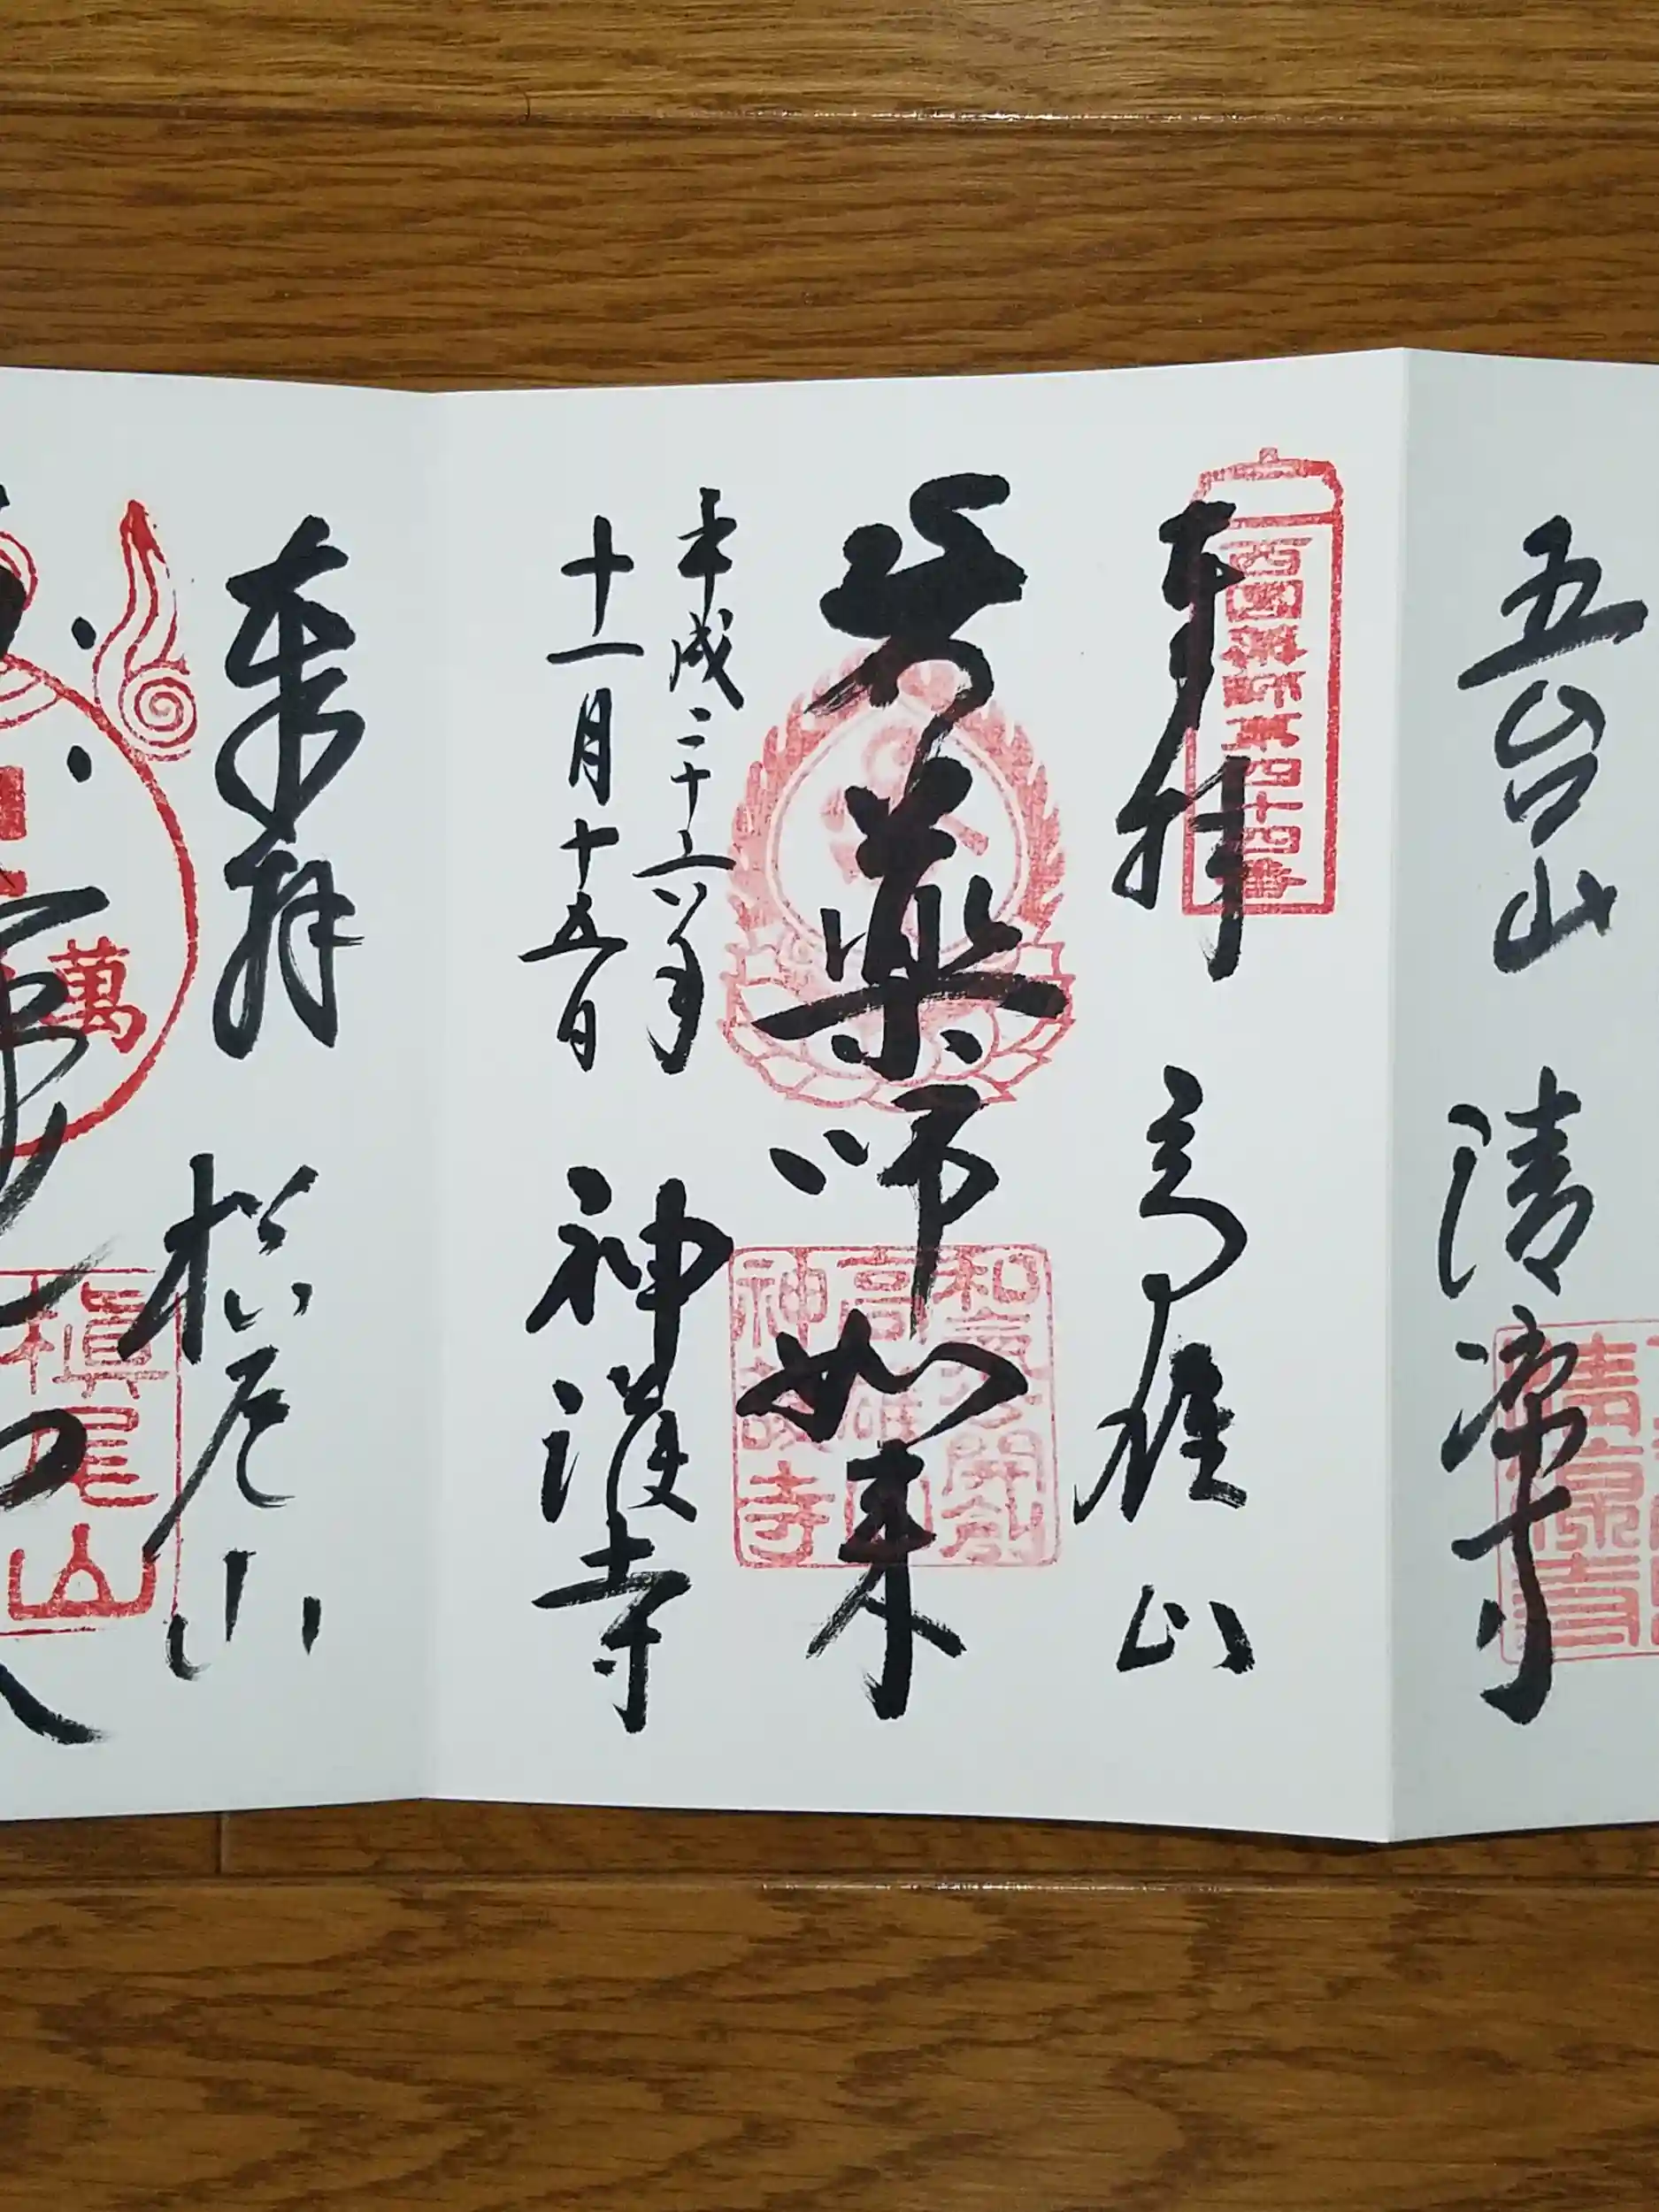 五台山　清凉寺
西国薬師第四十四番
奉拝　高雄山
薬師如来
和気公開創
高雄山
神護寺
平成二十六年
十一月十五日
神護寺
奉拝　槙尾山
萬
槇尾山